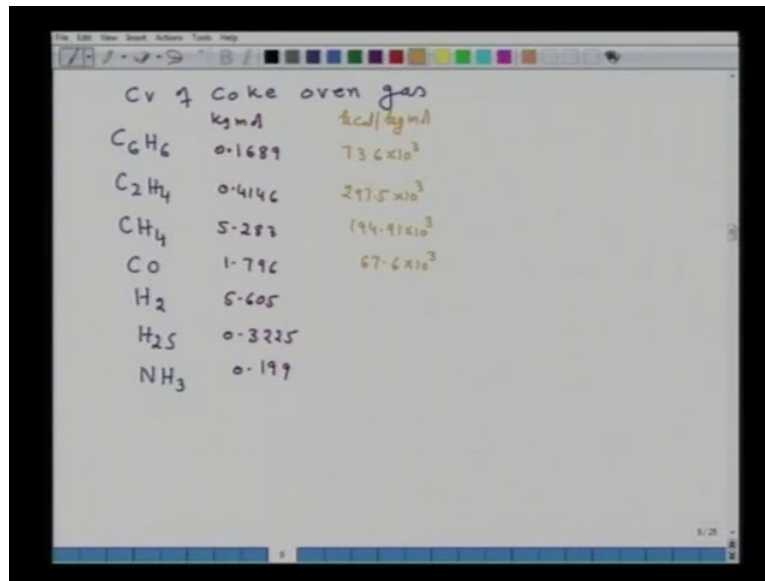 File Edit View Insert Actions Tools Help
Cv of Coke oven gas
kg mol kcal/kg mol
C6H6 0.1689 736x10³
C2H4 0.4146 297.5x10³
CH4 5.283 194.91x10³
CO 1.796 67.6x10³
H2 5.605
H2S 0.3225
NH3 0.199